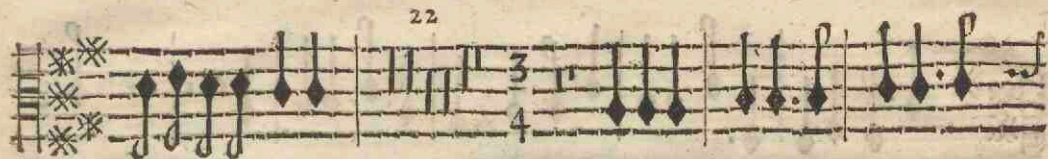 22
3
4